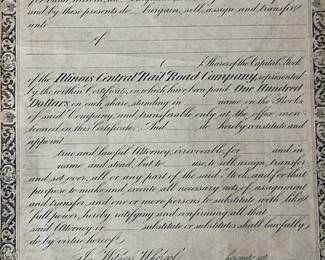 and by these presents do bargain, sell, assign and transfer
unto
of
( ) Shares of the Capital Stock
of the Illinois Central Rail Road Company, represented
by the within Certificate, on which have been paid One Hundred
Dollars on each share, standing in name on the Books
of said Company, and transferable only at the office men-
tioned in this Certificate. And do hereby constitute and
appoint
true and lawful Attorney, irrevocable, for and in
name and stead, but to use, to sell, assign, transfer
and set over, all or any part of the said Stock, and for that
purpose to make and execute all necessary acts of assignment
and transfer, and one or more persons to substitute with like
full power, hereby ratifying and confirming all that
said Attorney or substitute or substitutes shall lawfully
do by virtue hereof.
In Witness Whereof, hereunto set